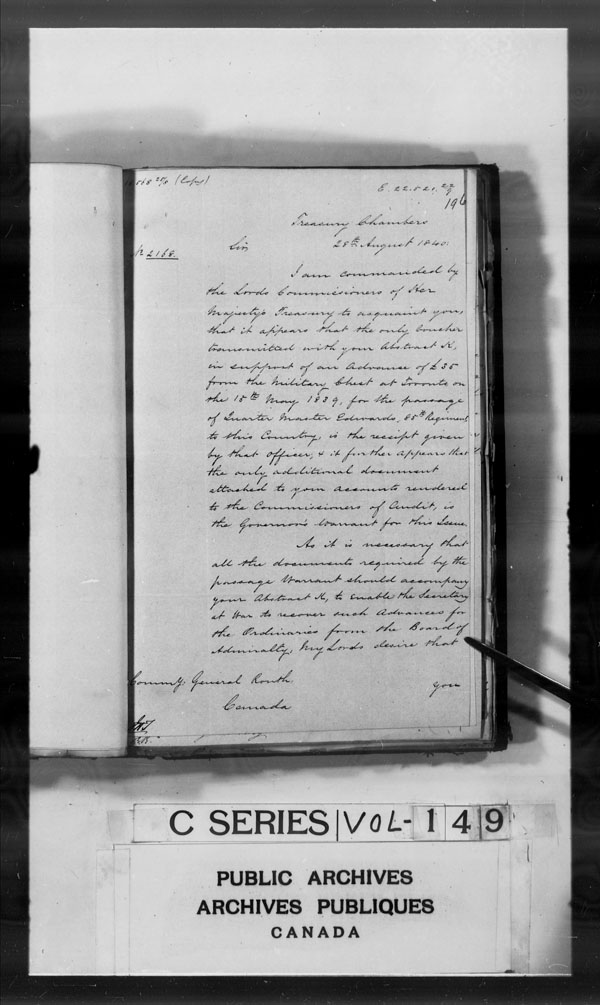 (Copy)
196
Treasury Chambers
28th August 1840.
No 2168. Sir,
I am commanded by
the Lords Commissioners of Her
Majesty's Treasury to acquaint you,
that it appears that the only voucher
transmitted with your Abstract K,
in support of an Advance of £35
from the Military Chest at Toronto on
the 15th May 1839, for the passage
of Quarter Master Edwards, 85th Regiment
to this Country, is the receipt given
by that Officer, & it further appears that
the only additional document
attached to your accounts rendered
to the Commissioners of Audit, is
the Governor's Warrant for this Issue.
As it is necessary that
all the documents required by the
passage Warrant should accompany
your Abstract K, to enable the Secretary
at War to recover such Advances for
the Ordinaries from the Board of
Admiralty, My Lords desire that
you
Commy General Routh
Canada
C SERIES VOL- 149
PUBLIC ARCHIVES
ARCHIVES PUBLIQUES
CANADA